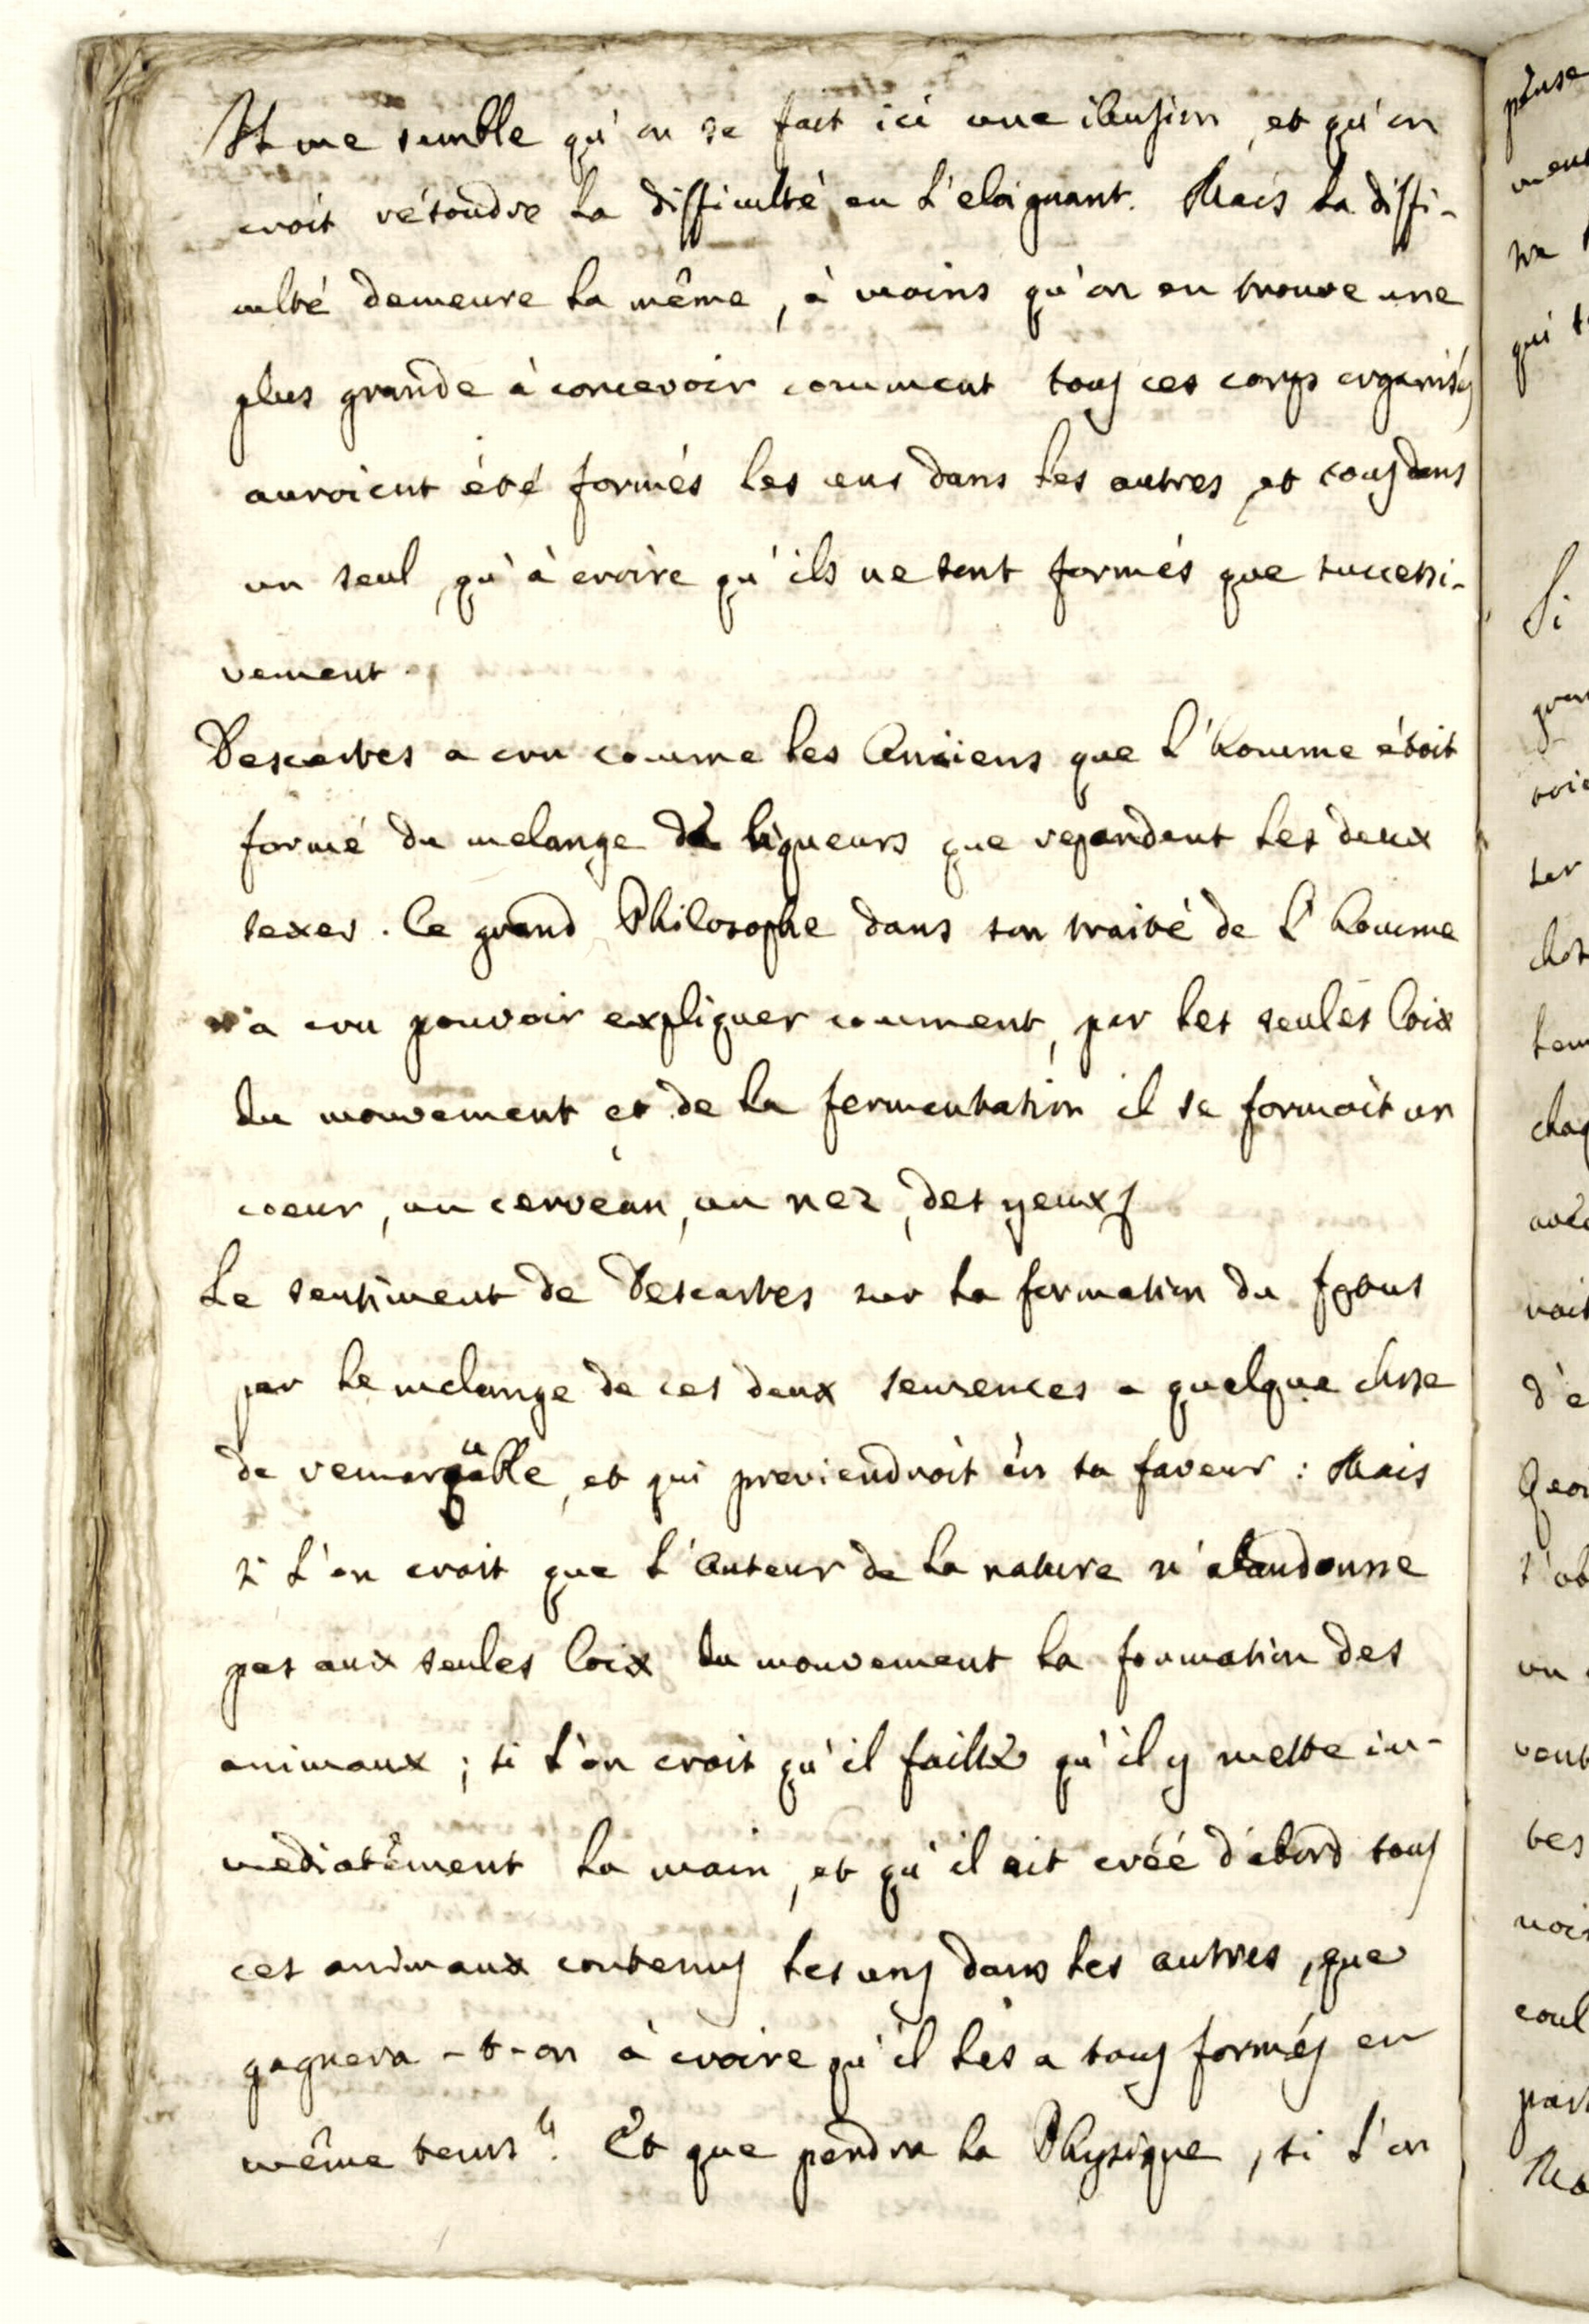 Il me semble qu'on se fait ici une ilusion, et qu'on
croit résoudre la difficulté en l'eloignant. Mais la diffi-
culté demeure la même, à moins qu'on en trouve une
plus grande à concevoir comment tous ces corps organisés
auroient été formés les uns dans les autres, et tous dans
un seul, qu'à croire qu'ils ne sont formés que successi-
vement.
Descartes a cru comme les Anciens que l'homme étoit
formé du melange de liqueurs que repandent les deux
sexes. Ce grand Philosophe dans son traité de l'homme
a cru pouvoir expliquer comment, par les seules loix
du mouvement et de la fermentation il se formoit un
coeur, un cerveau, un nez, des yeux
Le sentiment de Descartes sur la formation du fœtus
par le melange de ces deux semences a quelque chose
de remarquable, et qui previendroit en sa faveur: Mais
si l'on croit que l'Auteur de la nature n'abandonne
pas aux seules loix du mouvement la formation des
animaux; si l'on croit qu'il faille qu'il y mette im-
mediatement la main, et qu'il ait créé d'abord tous
ces animaux contenus les uns dans les autres, que
gagnera-t-on à croire qu'il les a tous formés en
même tems? Et que perdra la Physique, si l'on
pense
mens
ne
qui
Si
ter
chos
chaq
avec
voit
d'e
s'ob
un
vent
tes
voir
coul
part
Ma